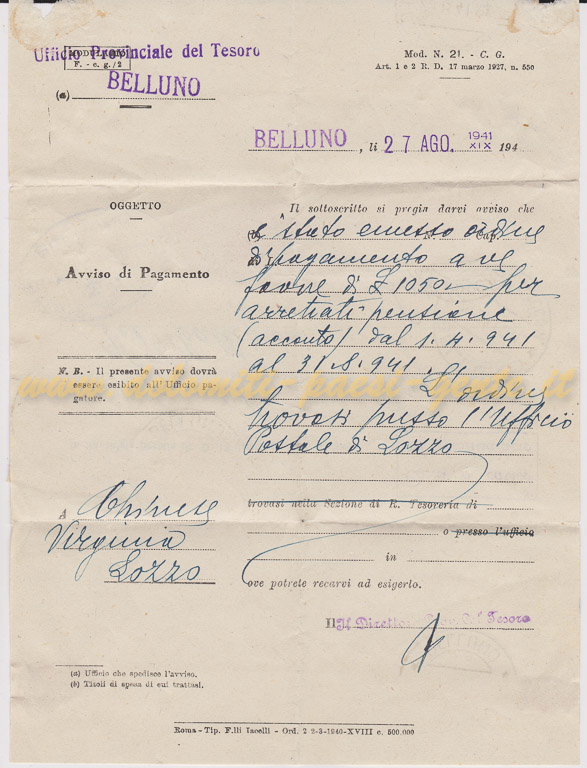 Ufficio Provinciale del Tesoro
MODULARIO
F. - c. g./2
BELLUNO
(a)
Mod. N. 21. - C. G.
Art. 1 e 2 R. D. 17 marzo 1927, n. 550
BELLUNO, li 27 AGO. 1941 XIX 194
OGGETTO
Avviso di Pagamento
N. B. - Il presente avviso dovrà
essere esibito all'Ufficio pa-
gatore.
Il sottoscritto si pregia darvi avviso che
è stato emesso ordine
di pagamento a vs
favore di £ 1050 per
arretrati pensione
(acconto) dal 1.4.941
al 31.8.941.
L'ordine
trovasi presso l'Ufficio
Postale di Lozzo
trovasi nella Sezione di R. Tesoreria di
o presso l'ufficio
in
ove potrete recarvi ad esigerlo.
A Chinese
Virginia
Lozzo
Il Il Direttore Prov. del Tesoro
(a) Ufficio che spedisce l'avviso.
(b) Titoli di spesa di cui trattasi.
Roma - Tip. F.lli Iacelli - Ord. 2 2-3-1940-XVIII c. 500.000
www.dolomiti-paesi-gente.it